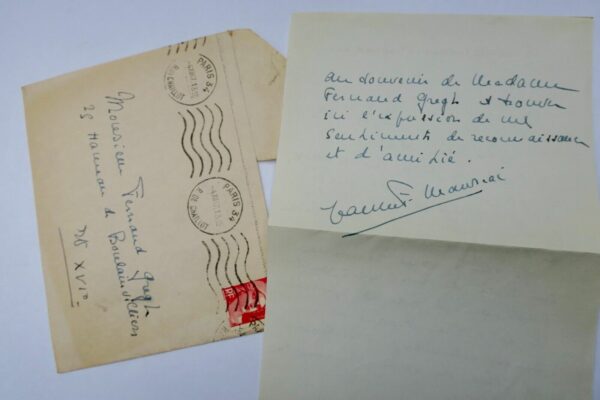 Monsieur Fernand Gregh
Hameau de Boulainvilliers
XVI
PARIS 34
PARIS 34
au souvenir de Madame
Fernand Gregh et trouver
ici l'expression de mes
sentiments de reconnaissance
et d'amitié.
Jeanne F. Mauriac